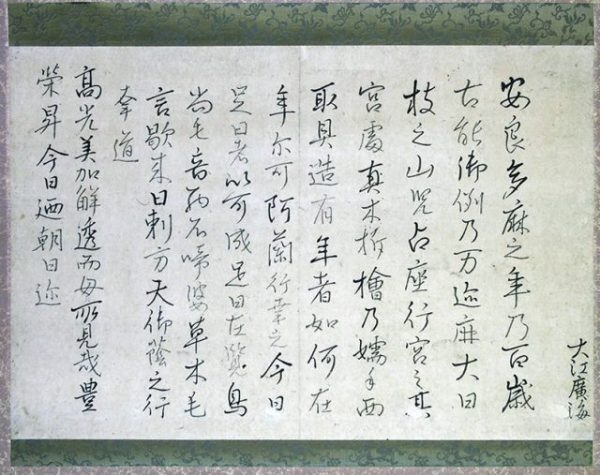 大江廣海
安良多麻之年乃百歳
古能御例乃万迩麻大日
枝之山占座行宮之其
宮處真木折檜乃嬬手西
取具造有年者如何在
年尓可阿蘭行幸之今日
足日者以可成足日在覽鳥
尚毛音不啼婆草木毛
言歇来日刺方天御蔭之行
幸道
高光美加解透而毎所見哉豊
榮昇今日廼朝日迩